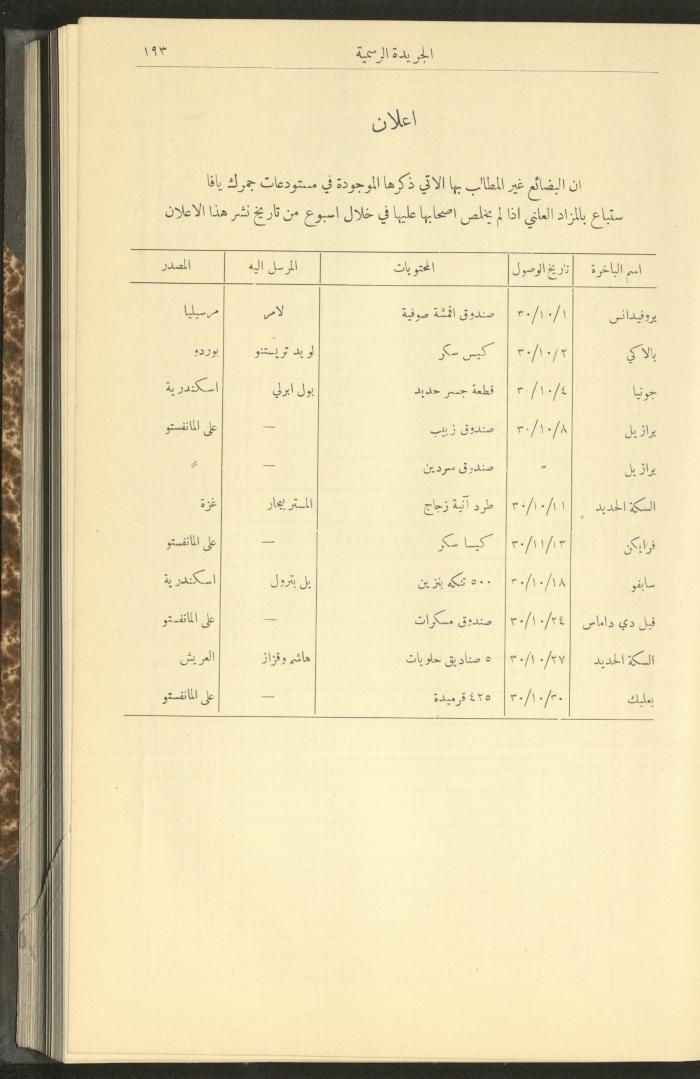 الجريدة الرسمية ١٩٣
اعلان
ان البضائع غير المطالب بها الاتي ذكرها الموجودة في مستودعات جمرك يافا
ستباع بالمزاد العلني اذا لم يخلص اصحابها عليها في خلال اسبوع من تاريخ نشر هذا الاعلان
اسم الباخرة تاريخ الوصول المحتويات المرسل اليه المصدر
بروفيدانس ٣٠/١٠/١ صندوق اقمشة صوفية لامر مرسيليا
بالاكي ٣٠/١٠/٢ كيس سكر لويد تريستنو بوردو
جونيا ٣٠/١٠/٤ قطعة جسر حديد بول ابرلي اسكندرية
برازيل ٣٠/١٠/٨ صندوق زبيب — على المانفستو
برازيل " صندوق سردين — "
السكة الحديد ٣٠/١٠/١١ طرد آنية زجاج المستر بيجار غزة
فرايكن ٣٠/١١/١٣ كيسا سكر — على المانفستو
سابفو ٣٠/١٠/١٨ ٥٠٠ تنكه بنزين يل بترول اسكندرية
فيل دي داماس ٣٠/١٠/٢٤ صندوق مسكرات — على المانفستو
السكة الحديد ٣٠/١٠/٢٧ ٥ صناديق حلويات هاشم وقزاز العريش
بعلبك ٣٠/١٠/٣٠ ٤٢٥ قرميدة — على المانفستو